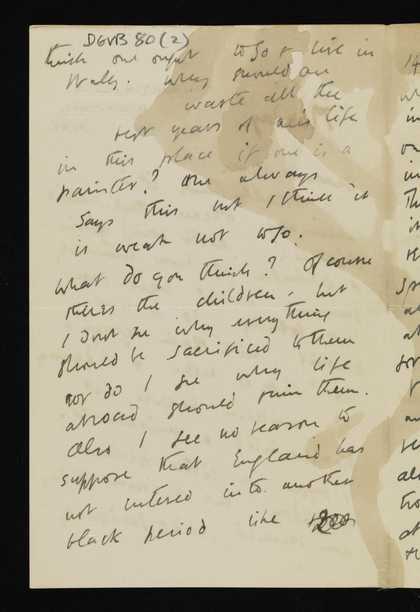 DGVB 80 (2)
think one ought to go & live in
Italy. Why should one
waste all the
best years of one's life
in this place if one is a
painter? One always
says this but I think it
is weak not to go.
What do you think? Of course
theres the children, but
I dont see why everything
should be sacrificed to them
nor do I see why life
abroad should ruin them.
Also I see no reason to
suppose that England has
not entered into another
black period like